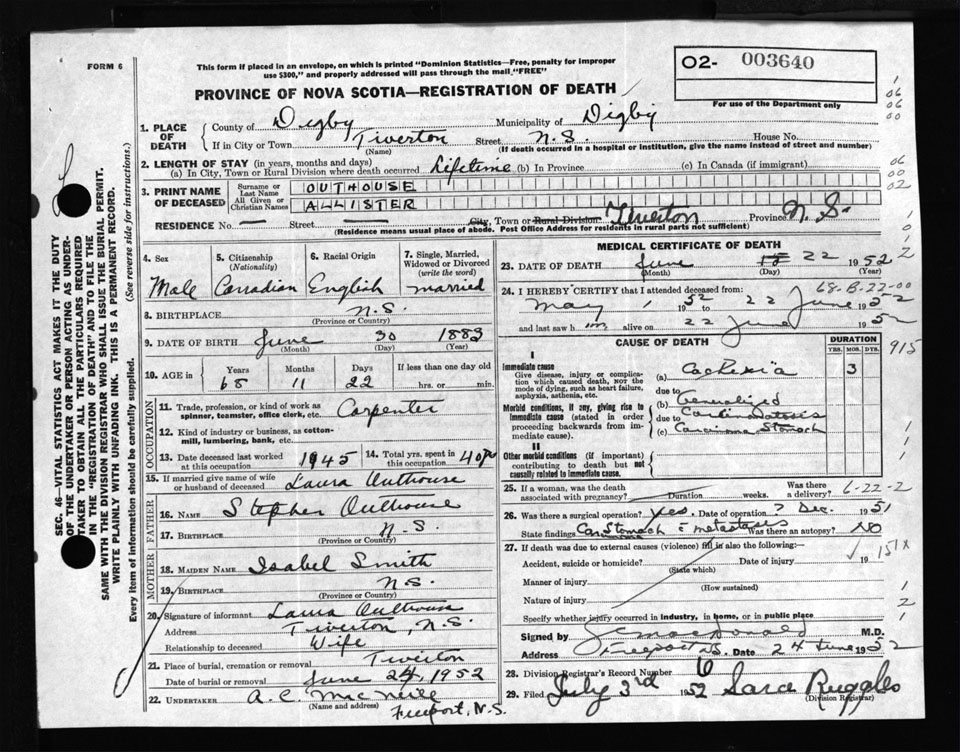 FORM 6
This form if placed in an envelope, on which is printed "Dominion Statistics—Free, penalty for improper
use $300," and properly addressed will pass through the mail "FREE"
O2- 003640
For use of the Department only
PROVINCE OF NOVA SCOTIA—REGISTRATION OF DEATH
SEC. 46—VITAL STATISTICS ACT MAKES IT THE DUTY
OF THE UNDERTAKER OR PERSON ACTING AS UNDER-
TAKER TO OBTAIN ALL THE PARTICULARS REQUIRED
IN THE "REGISTRATION OF DEATH" AND TO FILE THE
SAME WITH THE DIVISION REGISTRAR WHO SHALL ISSUE THE BURIAL PERMIT.
WRITE PLAINLY WITH UNFADING INK. THIS IS A PERMANENT RECORD.
Every item of information should be carefully supplied. (See reverse side for instructions.)
1. PLACE OF DEATH
County of Digby Municipality of Digby
If in City or Town Tiverton Street N.S. House No.
(Name) (If death occurred in a hospital or institution, give the name instead of street and number)
2. LENGTH OF STAY (in years, months and days)
(a) In City, Town or Rural Division where death occurred Lifetime (b) In Province (c) In Canada (if immigrant)
3. PRINT NAME OF DECEASED
Surname or Last Name OUTHOUSE
All Given or Christian Names ALLISTER
RESIDENCE No. — Street — City, Town or Rural Division Tiverton Province N.S.
(Residence means usual place of abode. Post Office Address for residents in rural parts not sufficient)
4. Sex Male
5. Citizenship (Nationality) Canadian
6. Racial Origin English
7. Single, Married, Widowed or Divorced (write the word) married
8. BIRTHPLACE N.S.
(Province or Country)
9. DATE OF BIRTH June 30 1883
(Month) (Day) (Year)
10. AGE in Years 68 Months 11 Days 22 If less than one day old
hrs. or min.
OCCUPATION
11. Trade, profession, or kind of work as spinner, teamster, office clerk, etc. Carpenter
12. Kind of industry or business, as cotton-mill, lumbering, bank, etc.
13. Date deceased last worked at this occupation 1945
14. Total yrs. spent in this occupation 40 yrs
15. If married give name of wife or husband of deceased Laura Outhouse
FATHER
16. NAME Stephen Outhouse
17. BIRTHPLACE N.S.
(Province or Country)
MOTHER
18. MAIDEN NAME Isabel Smith
19. BIRTHPLACE N.S.
(Province or Country)
20. Signature of informant Laura Outhouse
Address Tiverton, N.S.
Relationship to deceased Wife
21. Place of burial, cremation or removal Tiverton
Date of burial or removal June 24, 1952
22. UNDERTAKER A.C. MacNeill
(Name and address)
Freeport, N.S.
MEDICAL CERTIFICATE OF DEATH
23. DATE OF DEATH June 22 1952
(Month) (Day) (Year)
24. I HEREBY CERTIFY that I attended deceased from: 68-B-22-00
May 1 1952 22 June 1952
and last saw him alive on 22 June 1952
CAUSE OF DEATH
DURATION
YRS. MOS. DYS.
915
I
Immediate cause
Give disease, injury or complication which caused death, NOT the mode of dying, such as heart failure, asphyxia, asthenia, etc.
(a) Cachexia 3
due to
Morbid conditions, if any, giving rise to immediate cause (stated in order proceeding backwards from immediate cause).
(b) Generalized Carcinomatosis
due to
(c) Carcinoma Stomach
II
Other morbid conditions (if important) contributing to death but not causally related to immediate cause.
25. If a woman, was the death associated with pregnancy? Duration weeks. Was there a delivery? 6-22-2
26. Was there a surgical operation? Yes. Date of operation ? Dec. 1951
State findings Ca Stomach c metastases Was there an autopsy? NO
27. If death was due to external causes (violence) fill in also the following:—
Accident, suicide or homicide? Date of injury 19 151X
(State which)
Manner of injury
(How sustained)
Nature of injury
Specify whether injury occurred in industry, in home, or in public place
Signed by MacDonald M.D.
Address Freeport N.S. Date 24 June 1952
28. Division Registrar's Record Number 6
29. Filed July 3rd 1952 Sara Ruggles
(Division Registrar)